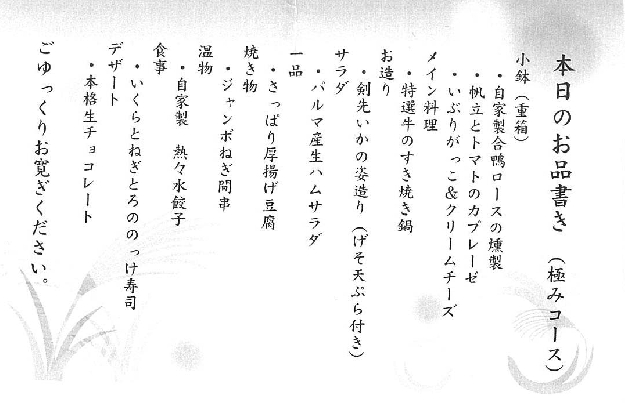 本日のお品書き (極みコース)
小鉢(重箱)
・自家製合鴨ロースの燻製
・帆立とトマトのカプレーゼ
・いぶりがっこ&クリームチーズ
メイン料理
・特選牛のすき焼き鍋
お造り
・剣先いかの姿造り(げそ天ぷら付き)
サラダ
・パルマ産生ハムサラダ
一品
・さっぱり厚揚げ豆腐
焼き物
・ジャンボねぎ間串
温物
・自家製 熱々水餃子
食事
・いくらとねぎとろののっけ寿司
デザート
・本格生チョコレート
ごゆっくりお寛ぎください。